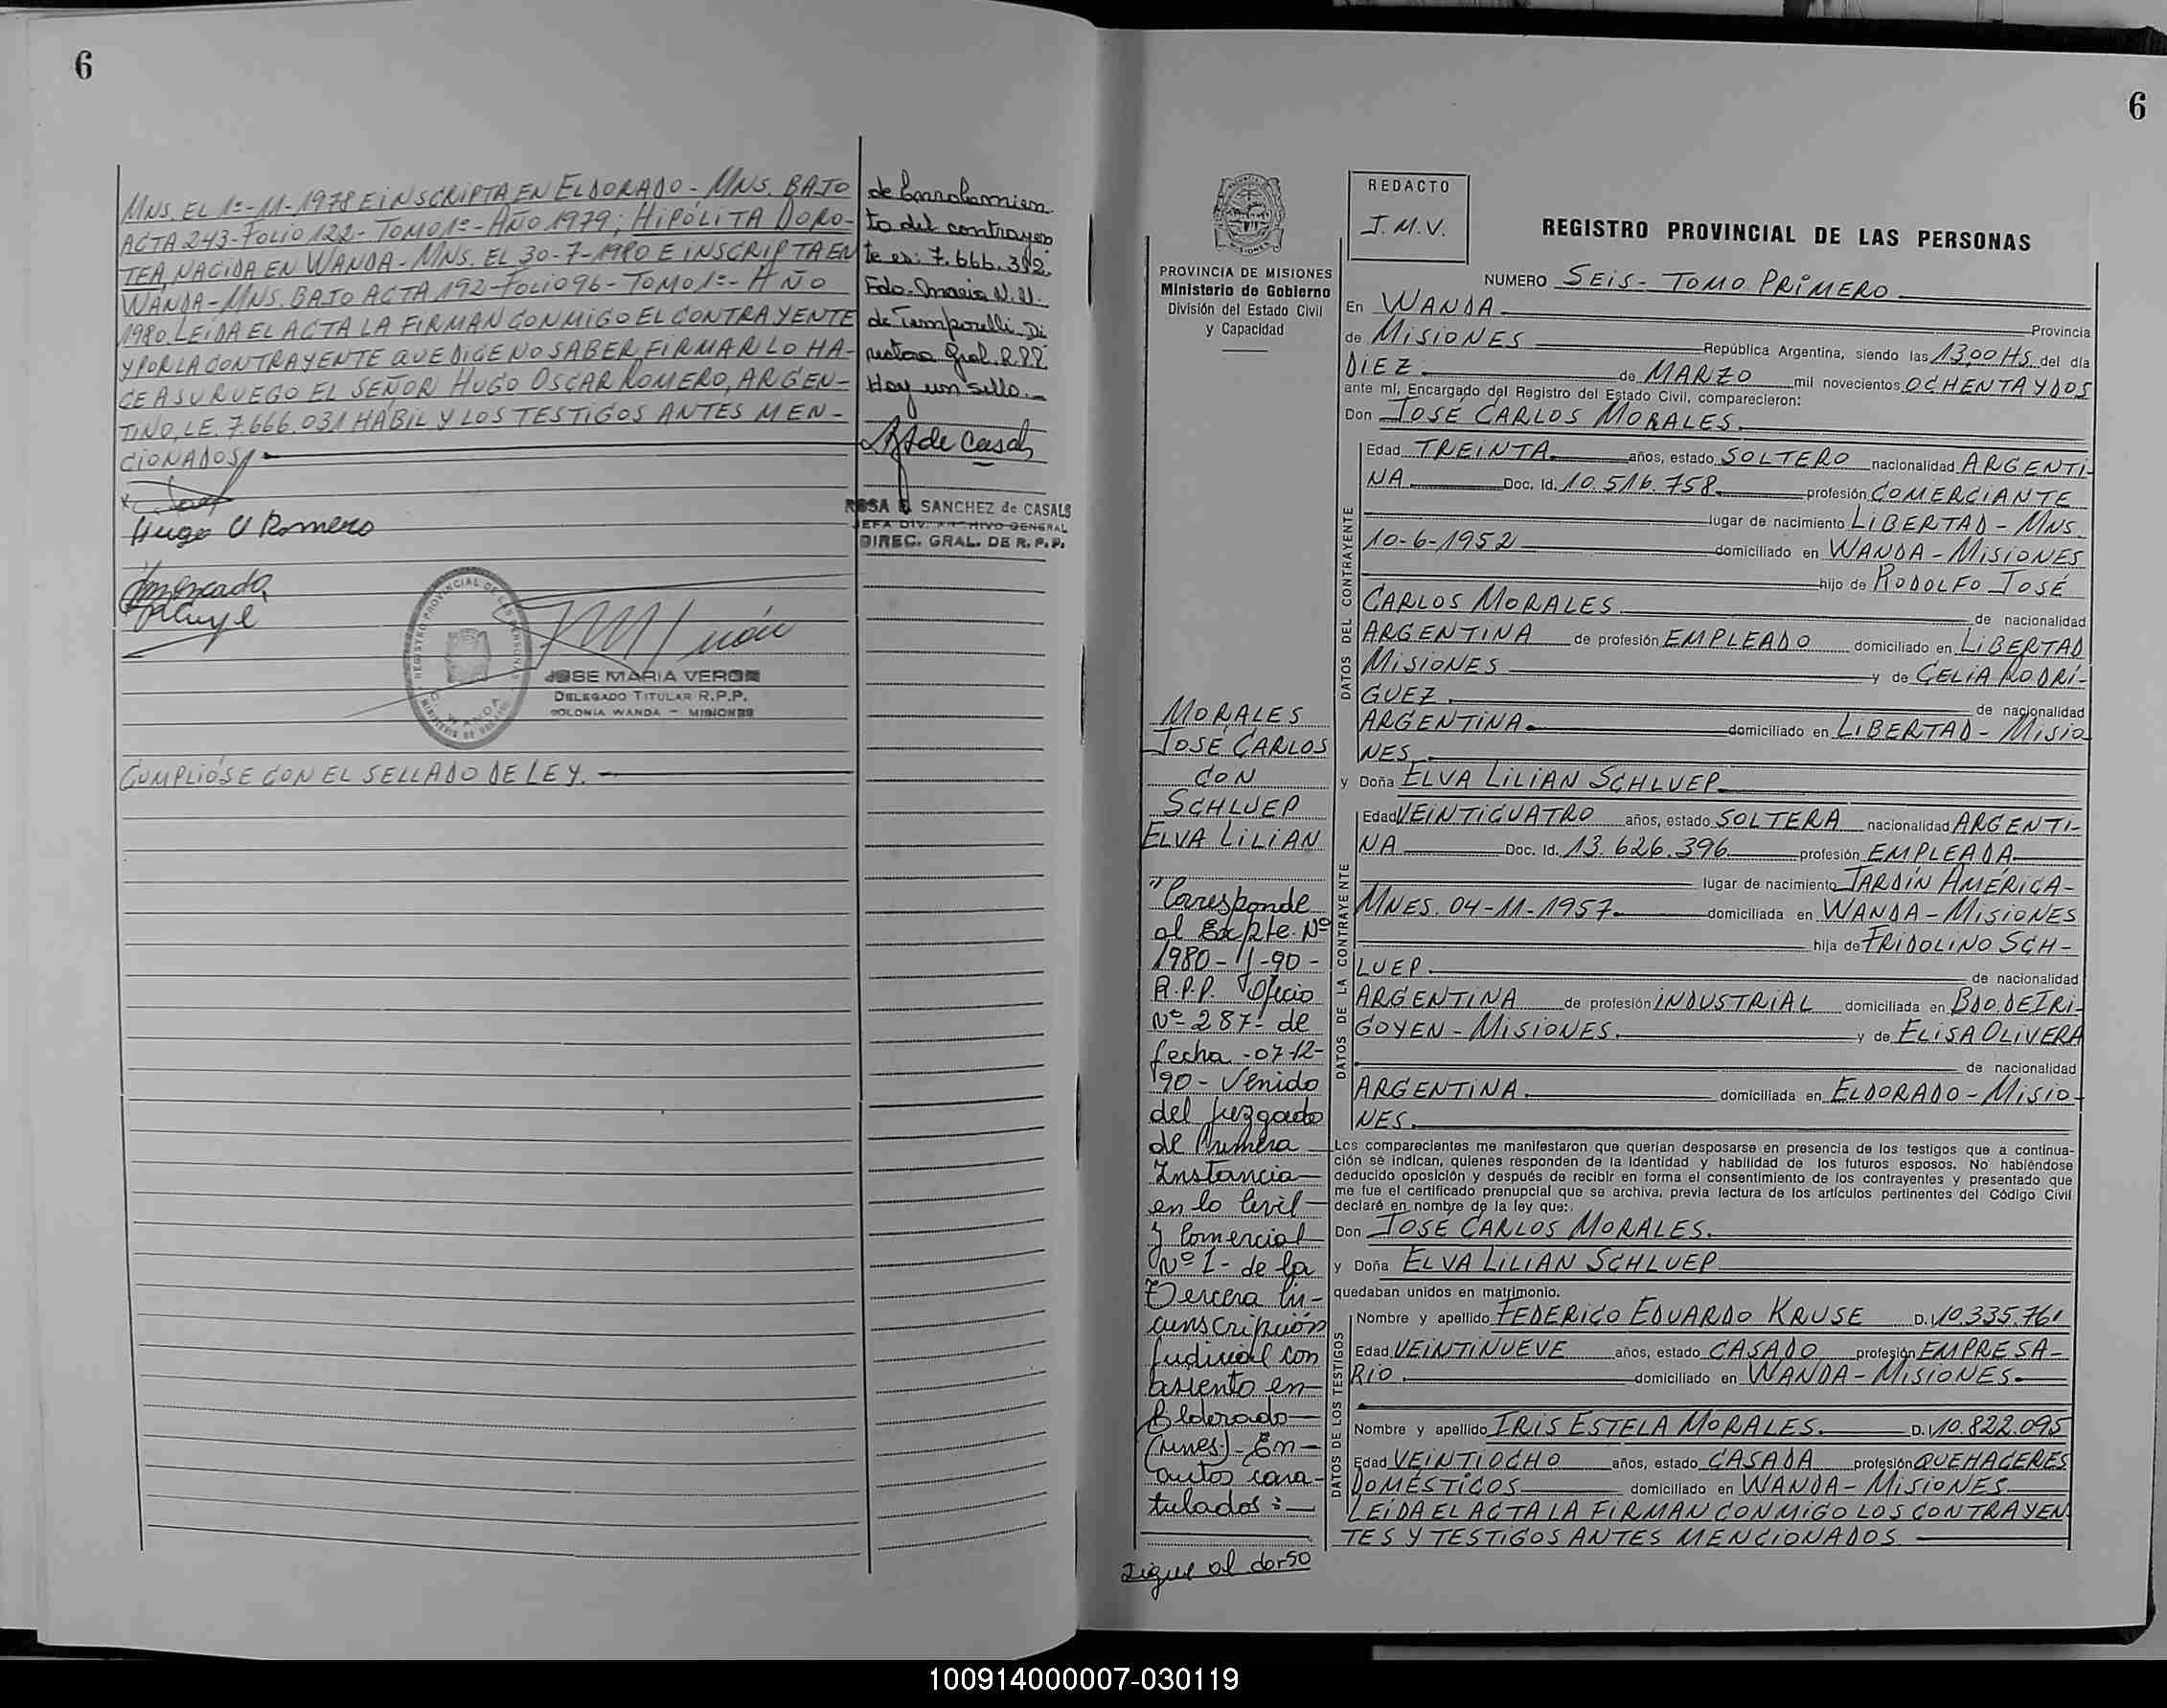 6
MNS. EL 1º-11-1978 E iNSCRiPTA EN ELDORADO - MNS. BAJO
ACTA 243-FOLiO 122- TOMO 1º-AÑO 1979; HiPÓLiTA DORO-
TEA, NACiDA EN WANDA-MNS. EL 30-7-1980 E iNSCRIPTA EN
WANDA-MNS. BAJO ACTA 192-FOLiO 96-TOMO 1º-AÑO
1980. LEiDA EL ACTA LA FiRMAN CONMiGO EL CONTRAYENTE
Y POR LA CONTRAYENTE QUE DiCE NO SABER FiRMAR LO HA-
CE A SU RUEGO EL SEÑOR HUGO OSCAR ROMERO, ARGEN-
TiNO, LE. 7.666.031 HÁBiL Y LOS TESTiGOS ANTES MEN-
CiONADOS
Hugo O Romero
REGISTRO PROVINCIAL DE LAS PERSONAS
WANDA
JOSE MARIA VERON
DELEGADO TITULAR R.P.P.
COLONIA WANDA - MISIONES
CUMPLiÓSE CON EL SELLADO DE LEY.
de Enrolamien
to del contrayen
te es: 7.666.392.
Fdo. Maria N. U.
de Temporelli Di
rectora Gral. R.P.P.
Hay un sello.
ROSA E. SANCHEZ de CASALS
JEFA DIV. ARCHIVO GENERAL
DIREC. GRAL. DE R. P. P.
6
PROVINCIA DE MISIONES
Ministerio de Gobierno
División del Estado Civil
y Capacidad
REDACTO
J.M.V.
REGISTRO PROVINCIAL DE LAS PERSONAS
NUMERO SEiS - TOMO PRiMERO
En WANDA Provincia
de MiSiONES República Argentina, siendo las 13,00 HS. del día
DiEZ de MARZO mil novecientos OCHENTA Y DOS
ante mí, Encargado del Registro del Estado Civil, comparecieron:
Don JOSÉ CARLOS MORALES.
DATOS DEL CONTRAYENTE
Edad TREiNTA años, estado SOLTERO nacionalidad ARGENTi-
NA Doc. Id. 10.516.758 profesión COMERCiANTE
lugar de nacimiento LiBERTAD - MNS.
10-6-1952 domiciliado en WANDA-MiSiONES
hijo de RODOLFO JOSÉ
CARLOS MORALES de nacionalidad
ARGENTiNA de profesión EMPLEADO domiciliado en LiBERTAD
MiSiONES y de CELiA RODRÍ-
GUEZ. de nacionalidad
ARGENTiNA domiciliado en LiBERTAD-MiSiO
NES.
y Doña ELVA LiLiAN SCHLUEP
DATOS DE LA CONTRAYENTE
Edad VEiNTiCUATRO años, estado SOLTERA nacionalidad ARGENTi-
NA Doc. Id. 13.626.396 profesión EMPLEADA
lugar de nacimiento JARDíN AMÉRiCA-
MNES. 04-11-1957 domiciliada en WANDA-MiSiONES
hija de FRiDOLiNO SCH-
LUEP. de nacionalidad
ARGENTiNA de profesión iNDUSTRiAL domiciliada en BDO. DE IRi-
GOYEN - MiSiONES y de ELiSA OLiVERA
de nacionalidad
ARGENTiNA. domiciliada en ELDORADO-MiSiO-
NES.
Los comparecientes me manifestaron que querían desposarse en presencia de los testigos que a continua-
ción se indican, quienes responden de la identidad y habilidad de los futuros esposos. No habiéndose
deducido oposición y después de recibir en forma el consentimiento de los contrayentes y presentado que
me fue el certificado prenupcial que se archiva, previa lectura de los artículos pertinentes del Código Civil
declaré en nombre de la ley que:
Don JOSÉ CARLOS MORALES.
y Doña ELVA LiLiAN SCHLUEP
quedaban unidos en matrimonio.
DATOS DE LOS TESTIGOS
Nombre y apellido FEDERiCO EDUARDO KRUSE D.I. 10.335.761
Edad VEiNTiNUEVE años, estado CASADO profesión EMPRESA-
RiO. domiciliado en WANDA-MiSiONES
Nombre y apellido IRiS ESTELA MORALES. D.I. 10.822.095
Edad VEiNTiOCHO años, estado CASADA profesión QUEHACERES
DOMÉSTiCOS domiciliado en WANDA-MiSiONES
LEiDA EL ACTA LA FiRMAN CONMiGO LOS CONTRAYEN
TES Y TESTiGOS ANTES MENCiONADOS
MORALES
JOSÉ CARLOS
CON
SCHLUEP
ELVA LiLiAN
"Corresponde
al Expte. Nº
1980-J-90-
R.P.P. Oficio
Nº 287- de
fecha -07-12-
90- Venido
del Juzgado
de Primera
Instancia
en lo Civil
y Comercial
Nº 1- de la
Tercera Cir-
cunscripción
Judicial con
asiento en
Eldorado
(Mnes.)- En
autos cara-
tulados:
Sigue al dorso
100914000007-030119